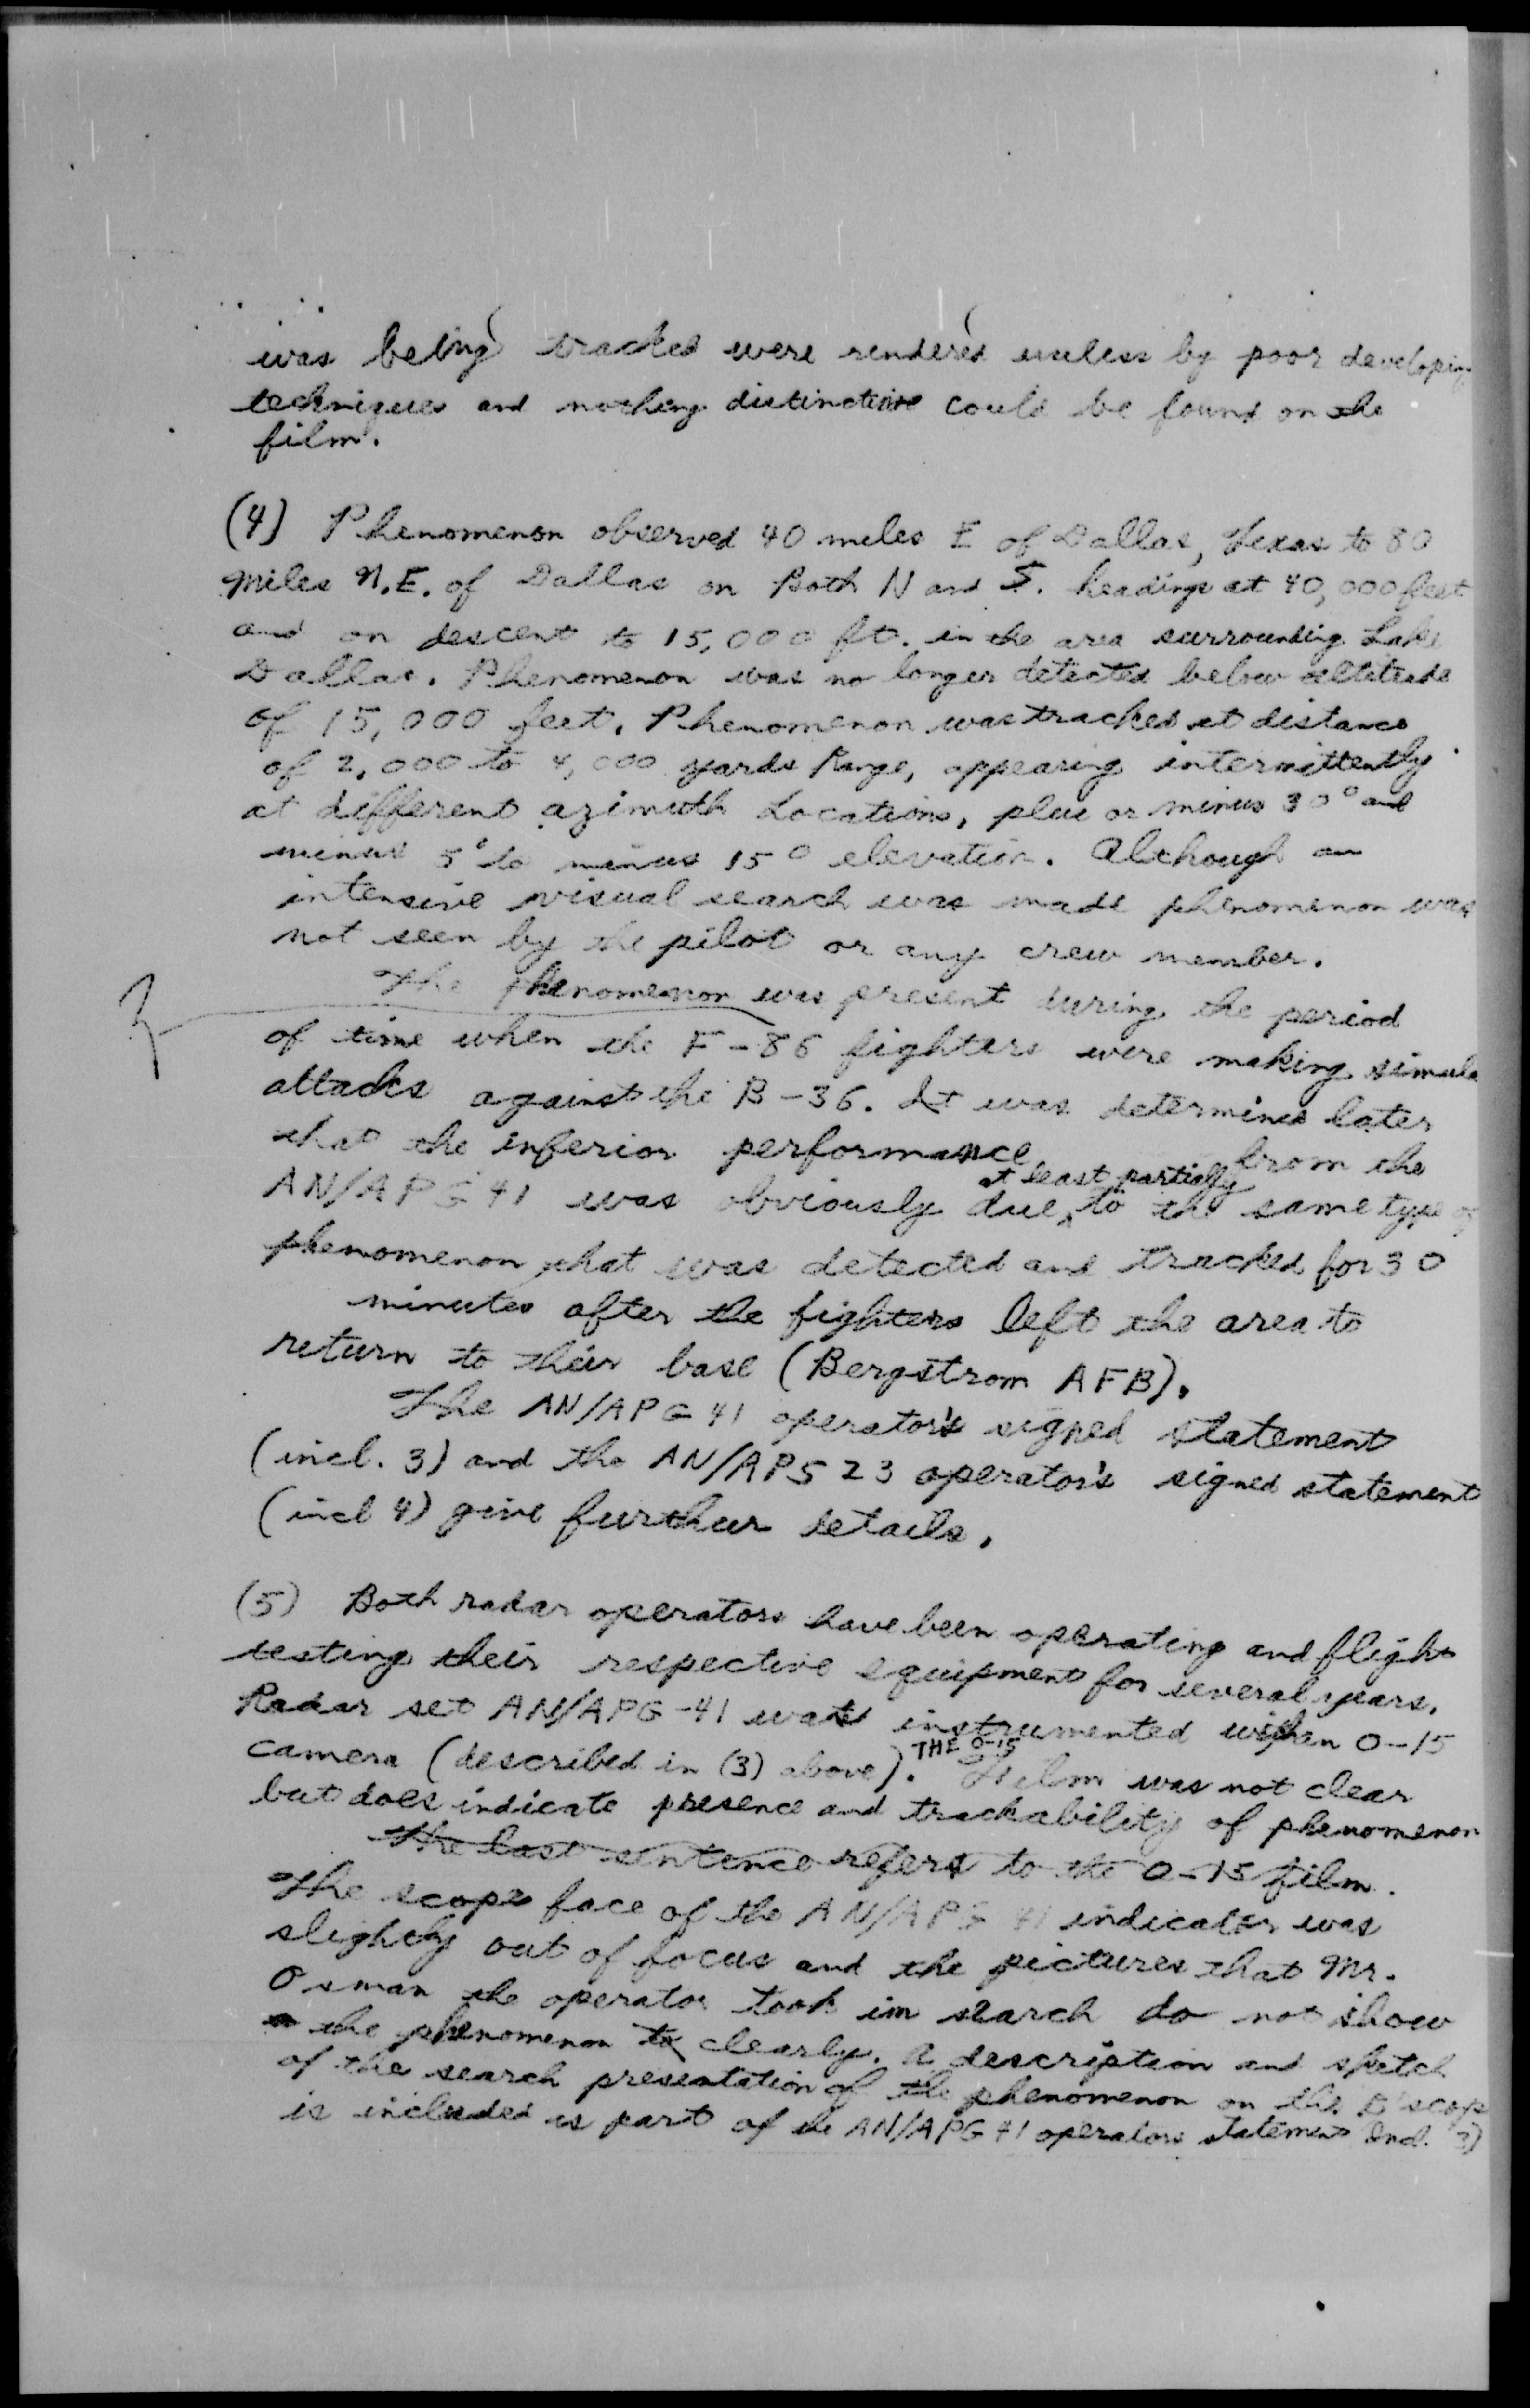 was being tracked were rendered useless by poor developing
techniques and nothing distinctive could be found on the
film.
(4) Phenomenon observed 40 miles E of Dallas, Texas to 80
miles N.E. of Dallas on Both N and S. headings at 40,000 feet
and on descent to 15,000 ft. in the area surrounding Lake
Dallas. Phenomenon was no longer detected below altitude
of 15,000 feet. Phenomenon was tracked at distance
of 2,000 to 4,000 yards Range, appearing intermittently
at different azimuth Locations, plus or minus 30° and
minus 5° to minus 15° elevation. Although an
intensive visual search was made phenomenon was
not seen by the pilot or any crew member.
The phenomenon was present during the period
of time when the F-86 fighters were making simula
attacks against the B-36. It was determined later
that the inferior performance from the
AN/APG 41 was obviously due at least partially to the same type of
phenomenon that was detected and tracked for 30
minutes after the fighters left the area to
return to their base (Bergstrom AFB).
The AN/APG 41 operator's signed statement
(incl. 3) and the AN/APS 23 operator's signed statement
(incl 4) give further details.
(5) Both radar operators have been operating and flight
testing their respective equipment for several years.
Radar set AN/APG-41 was instrumented with an O-15
camera (described in (3) above). THE O-15 Film was not clear
but does indicate presence and trackability of phenomenon
The last sentence refers to the O-15 film.
The scope face of the AN/APG 41 indicator was
slightly out of focus and the pictures that Mr.
Osman the operator took in search do not show
the phenomenon to clearly. A description and sketch
of the search presentation of the phenomenon on the scope
is included as part of the AN/APG 41 operators statement Incl. 3)